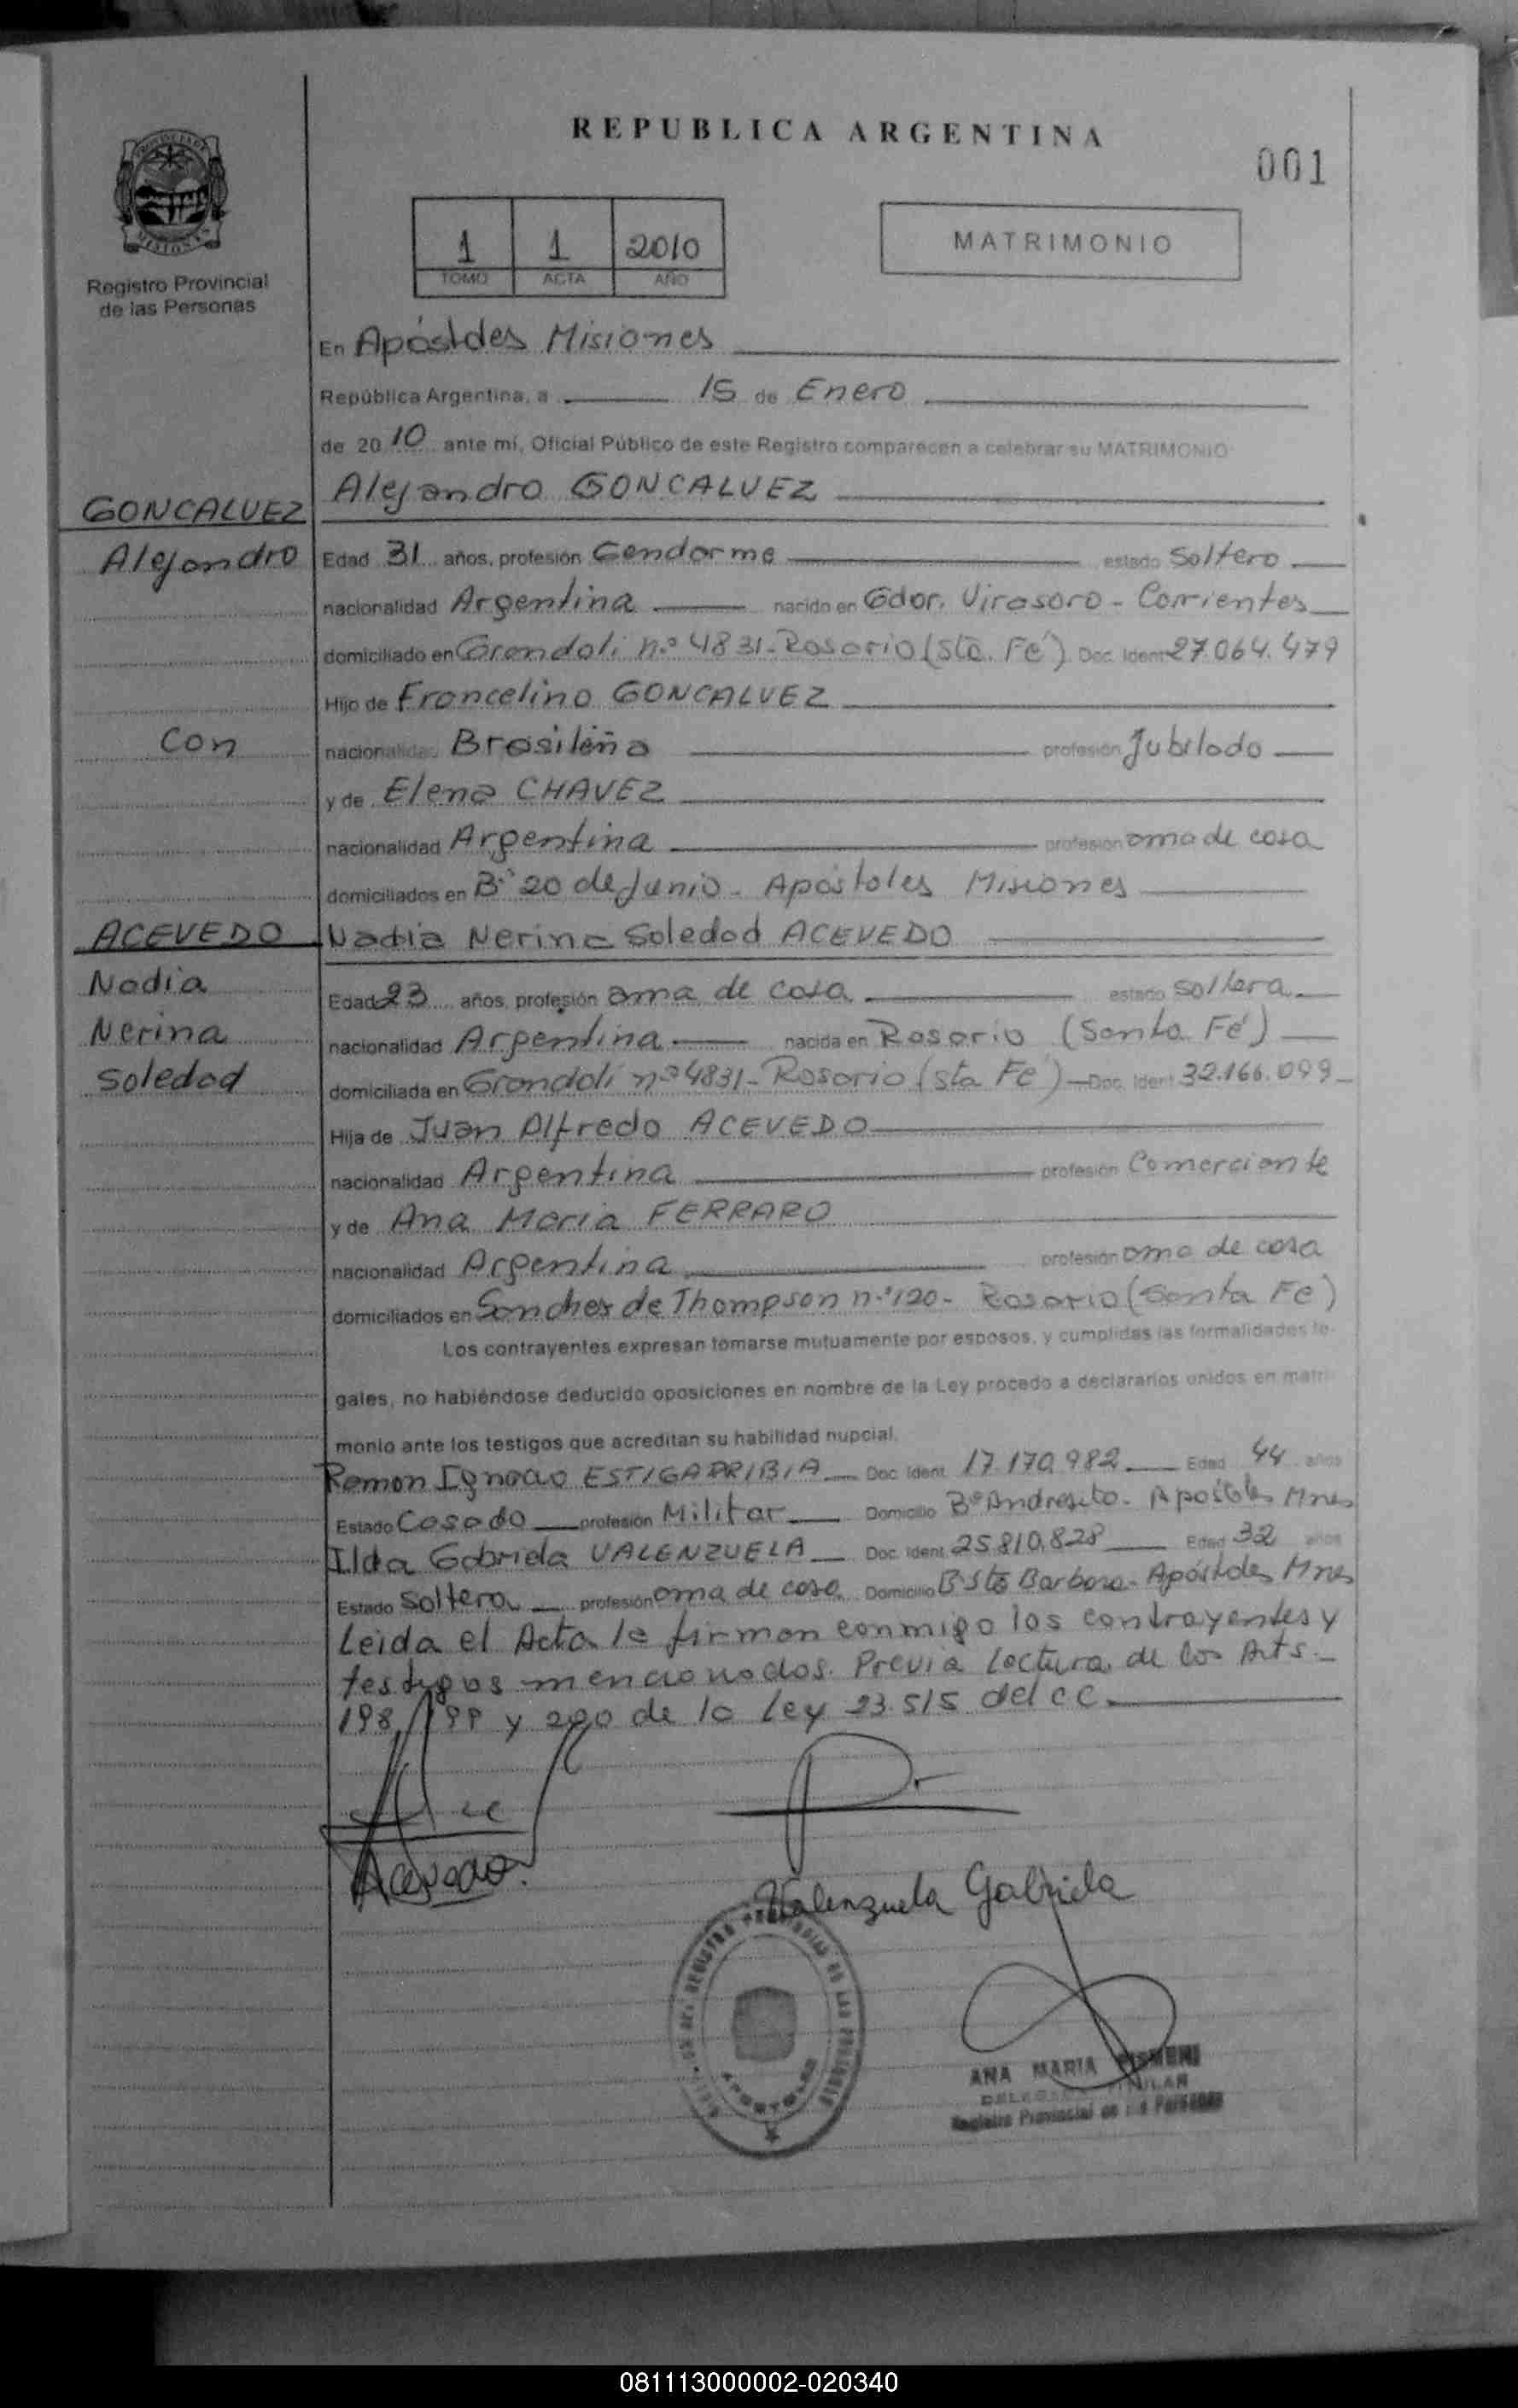 REPUBLICA ARGENTINA
001
1 1 2010
TOMO ACTA AÑO
MATRIMONIO
PROVINCIA DE MISIONES
Registro Provincial
de las Personas
En Apóstoles Misiones
República Argentina, a 15 de Enero
de 2010 ante mí, Oficial Público de este Registro comparecen a celebrar su MATRIMONIO
GONCALVEZ Alejandro GONCALVEZ
Alejandro Edad 31 años, profesión Gendarme estado Soltero
nacionalidad Argentina nacido en Gdor. Virasoro - Corrientes
domiciliado en Grandoli n.º 4831 - Rosario (Sta. Fé) Doc. Ident 27.064.479
Hijo de Francelino GONCALVEZ
Con nacionalidad Brasileña profesión Jubilado
y de Elena CHAVEZ
nacionalidad Argentina profesión ama de casa
domiciliados en B.º 20 de Junio - Apóstoles Misiones
ACEVEDO Nadia Nerina Soledad ACEVEDO
Nadia Edad 23 años, profesión ama de casa estado soltera
Nerina nacionalidad Argentina nacida en Rosario (Santa Fé)
Soledad domiciliada en Grandoli nº 4831 - Rosario (Sta Fé) Doc. Ident 32.166.099
Hija de Juan Alfredo ACEVEDO
nacionalidad Argentina profesión Comerciante
y de Ana Maria FERRARO
nacionalidad Argentina profesión ama de casa
domiciliados en Sanchez de Thompson n.º 120 - Rosario (Santa Fe)
Los contrayentes expresan tomarse mutuamente por esposos, y cumplidas las formalidades le-
gales, no habiéndose deducido oposiciones en nombre de la Ley procedo a declararlos unidos en matri-
monio ante los testigos que acreditan su habilidad nupcial.
Ramon Ignacio ESTIGARRIBIA Doc. Ident. 17.170.982 Edad 44 años
Estado Casado profesión Militar Domicilio Bº Andresito - Apóstoles Mnes
Ilda Gabriela VALENZUELA Doc. Ident. 25.810.828 Edad 32 años
Estado Soltera profesión ama de casa Domicilio B Sta Barbara - Apóstoles Mnes
Leida el Acta la firman conmigo los contrayentes y
testigos mencionados. Previa lectura de los Arts.
198, 199 y 200 de la Ley 23.515 del CC.
Acevedo.
Valenzuela Gabriela
APOSTOLES
ANA MARIA
TITULAR
Registro Provincial de las Personas
081113000002-020340